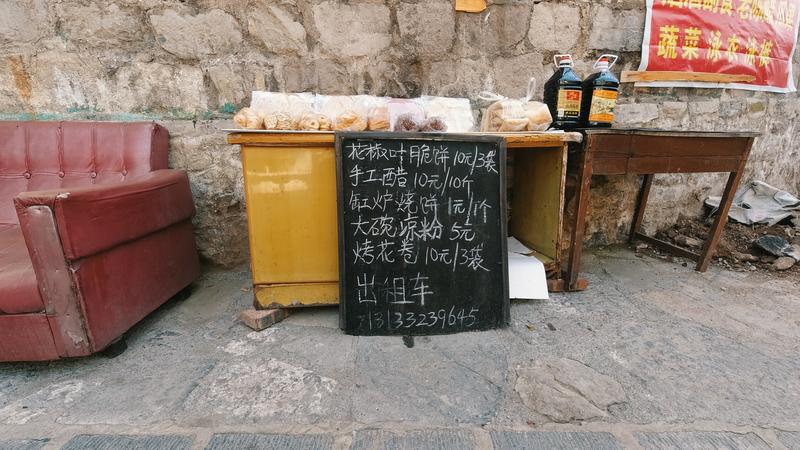 蔬菜 泳衣冰棍
花椒叶脆饼10元/3袋
手工醋 10元/10斤
缸炉烧饼 1元/1个
大碗凉粉 5元
烤花卷 10元/3袋
出租车
13133239645